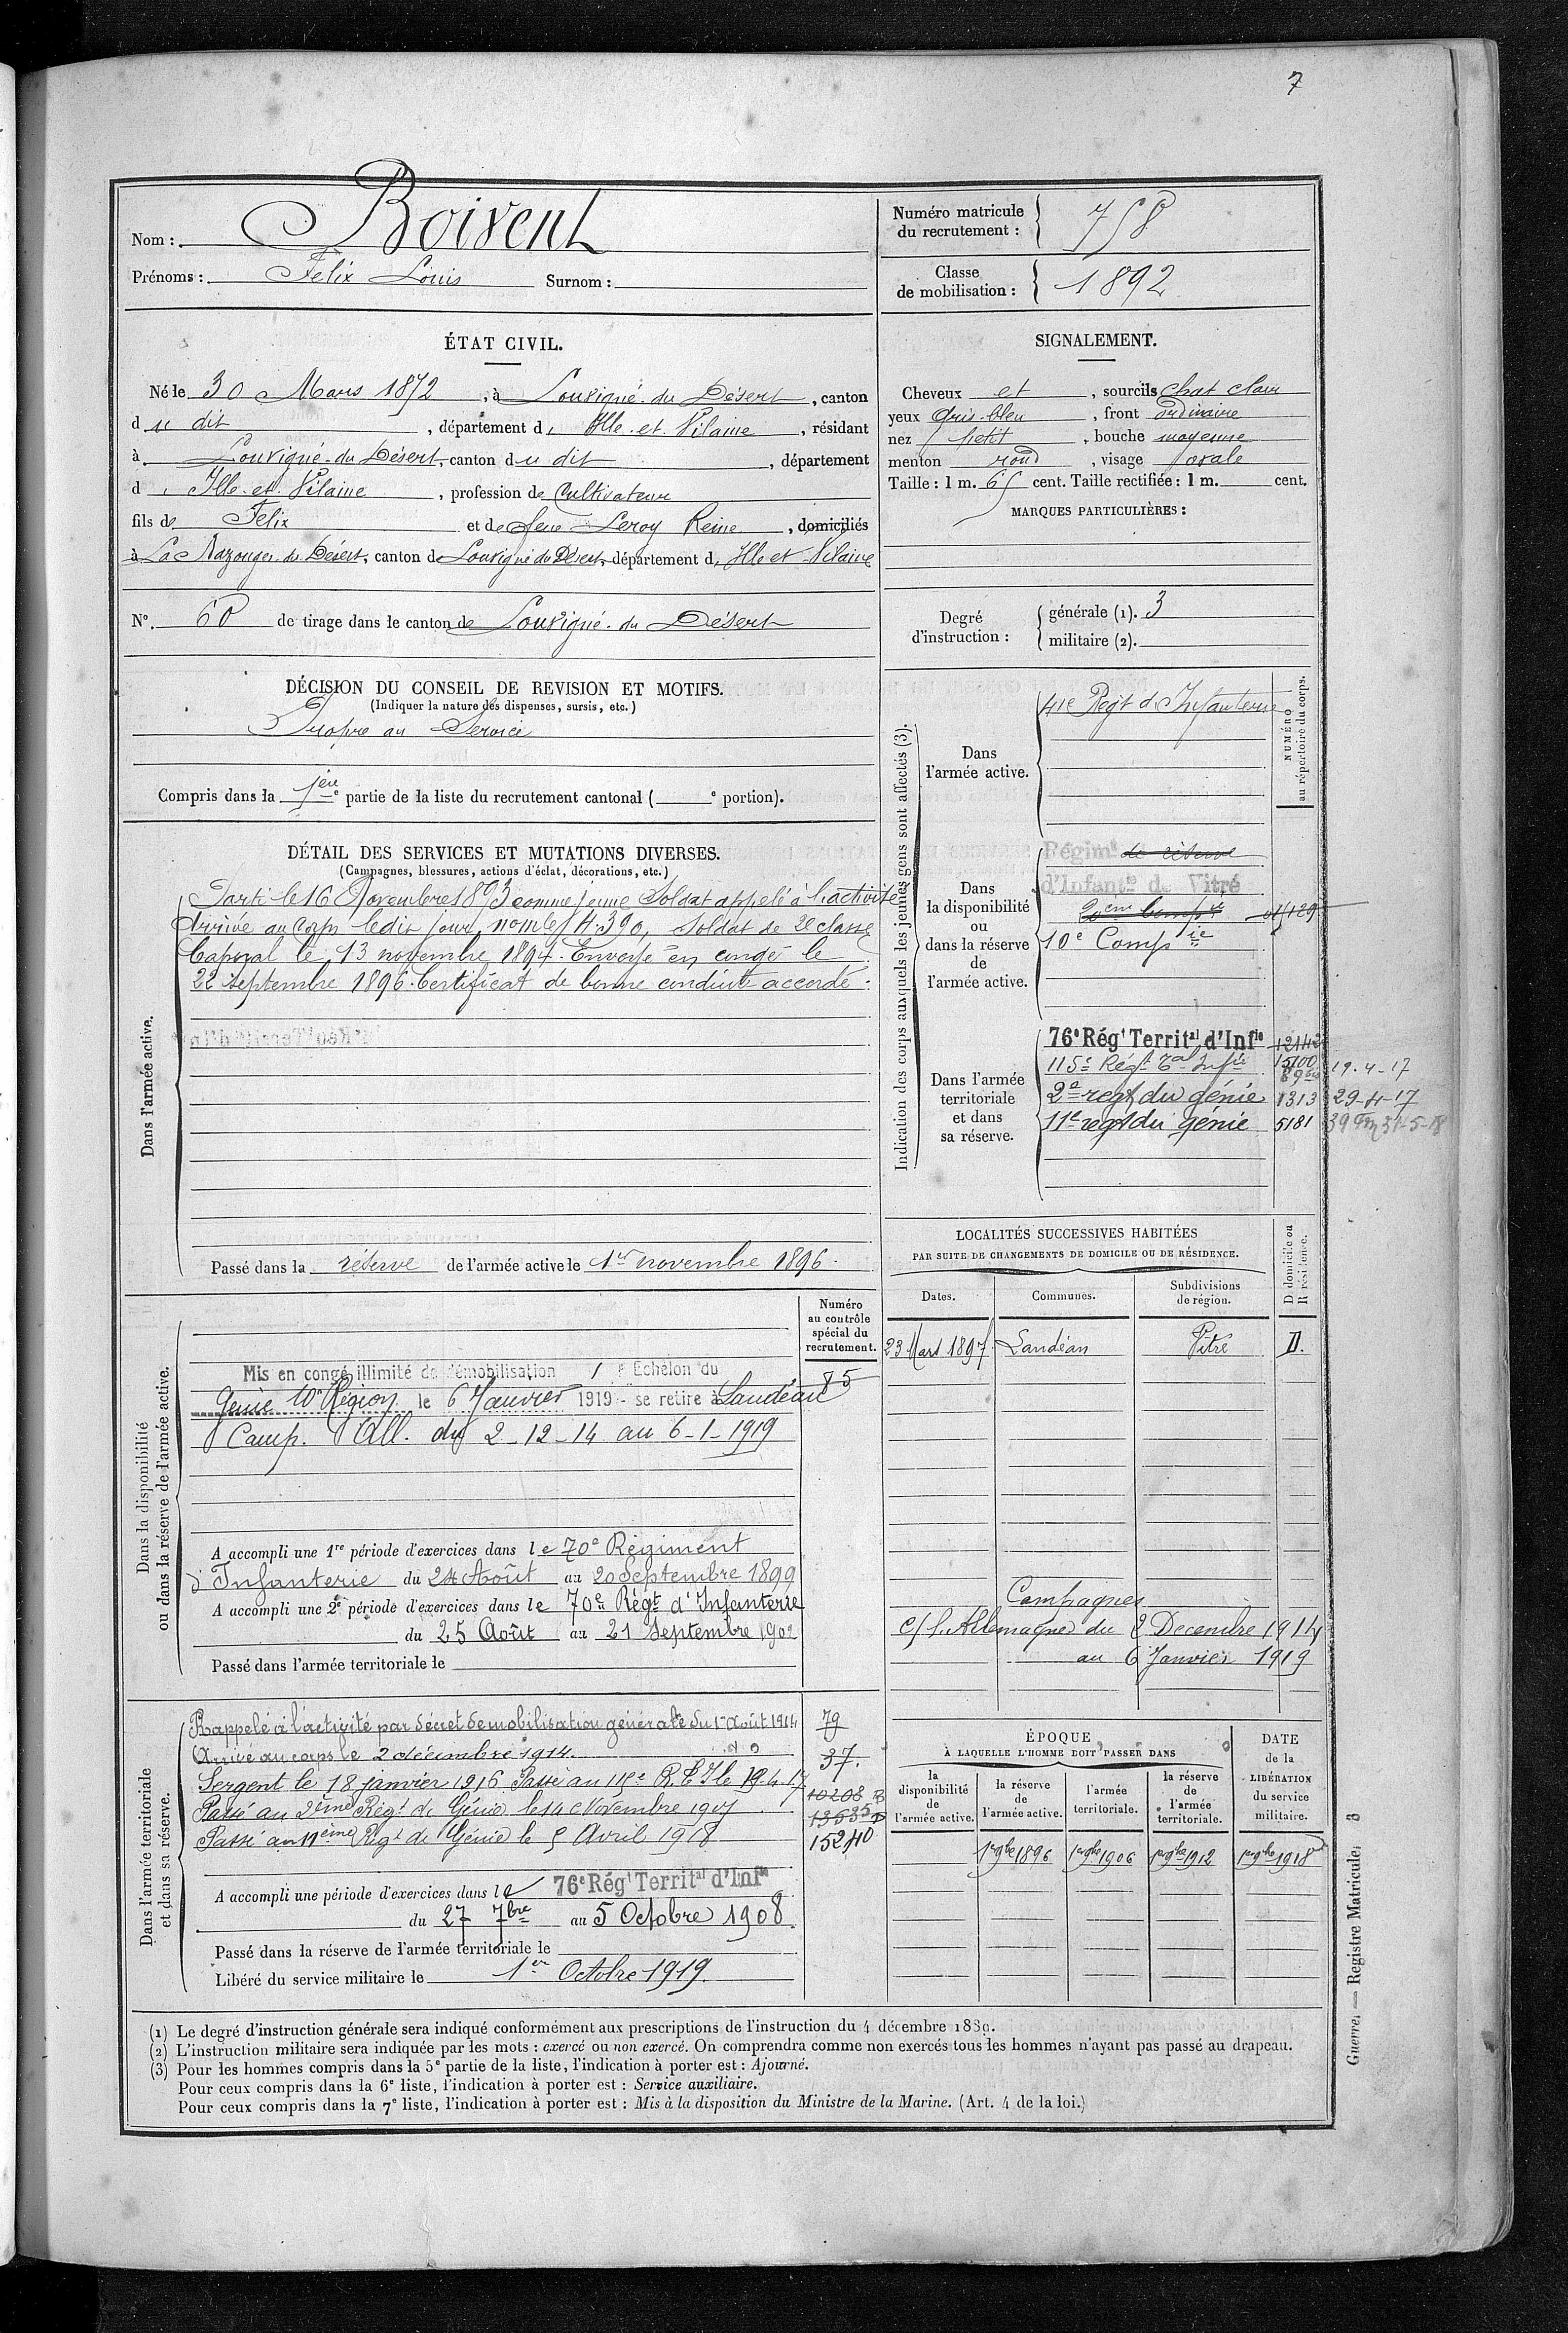 7
Nom : Boivent
Prénoms : Felix Louis Surnom :
Numéro matricule
du recrutement : 758
Classe
de mobilisation : 1892
ÉTAT CIVIL.
Né le 30 Mars 1872, à Louvigné-du-Désert, canton
du dit, département d' Ille-et-Vilaine, résidant
à Louvigné-du-Désert, canton du dit, département
d' Ille-et-Vilaine, profession de Cultivateur
fils de Felix et de feue Leroy Reine, domiciliés
à La Bazouges-du-Désert, canton de Louvigné du Désert, département d' Ille et Vilaine
N° 60 de tirage dans le canton de Louvigné-du-Désert
SIGNALEMENT.
Cheveux et, sourcils chat clair
yeux Gris-bleu, front ordinaire
nez petit, bouche moyenne
menton rond, visage ovale
Taille : 1 m. 65 cent. Taille rectifiée : 1 m. cent.
MARQUES PARTICULIÈRES :
Degré
d'instruction :
générale (1). 3
militaire (2).
DÉCISION DU CONSEIL DE REVISION ET MOTIFS.
(Indiquer la nature des dispenses, sursis, etc.)
Propre au Service
Compris dans la 1ère partie de la liste du recrutement cantonal ( e portion).
DÉTAIL DES SERVICES ET MUTATIONS DIVERSES.
(Campagnes, blessures, actions d'éclat, décorations, etc.)
Dans l'armée active.
Parti le 16 Novembre 1893 comme jeune Soldat appelé à l'activité
Arrivé au Corps ledit jour, nº mle 4.390, Soldat de 2e classe
Caporal le 13 novembre 1894. Envoyé en congé le
22 septembre 1896. Certificat de bonne conduite accordé.
Passé dans la réserve de l'armée active le 1er novembre 1896.
Indication des corps auxquels les jeunes gens sont affectés (3).
NUMÉRO
au répertoire du corps.
Dans
l'armée active.
41e Régt d'Infanterie
Dans
la disponibilité
ou
dans la réserve
de
l'armée active.
Régimt de réserve
d'Infantie de Vitré
10e Compie
Dans l'armée
territoriale
et dans
sa réserve.
76e Régt Territal d'Infie
115e Régt Tal Infie 15100 19-4-17
2e regt du génie 1313 29-4-17
11e regt du génie 5181
LOCALITÉS SUCCESSIVES HABITÉES
PAR SUITE DE CHANGEMENTS DE DOMICILE OU DE RÉSIDENCE.
Dates. Communes. Subdivisions
de région.
D domicile ou
R résidence.
23 Mars 1897 Landéan Vitré D.
Campagnes
c/ l'Allemagne du 2 Décembre 1914
au 6 Janvier 1919
Dans la disponibilité
ou dans la réserve de l'armée active.
Numéro
au contrôle
spécial du
recrutement.
85
Mis en congé illimité de démobilisation 1e Echelon du
Génie 10e Région le 6 Janvier 1919 - se retire à Landéan
Camp. All. du 2-12-14 au 6-1-1919
A accompli une 1re période d'exercices dans le 70e Régiment
d'Infanterie du 24 Août au 20 Septembre 1899
A accompli une 2e période d'exercices dans le 70e Régt d'Infanterie
du 25 Août au 21 Septembre 1902
Passé dans l'armée territoriale le
Dans l'armée territoriale
et dans sa réserve.
Rappelé à l'activité par décret de mobilisation générale du 1er Août 1914 79
Arrivé au corps le 2 décembre 1914. 37.
Sergent le 18 janvier 1916 Passé au 115e R.T.I le 19-4-17 10208
Passé au 2ème Régt de Génie le 14 Novembre 1917
Passé au 11ème Régt de Génie le 5 Avril 1918 15240
A accompli une période d'exercices dans le 76e Régt Territal d'Infie
du 27 7bre au 5 Octobre 1908.
Passé dans la réserve de l'armée territoriale le
Libéré du service militaire le 1er Octobre 1919.
ÉPOQUE
À LAQUELLE L'HOMME DOIT PASSER DANS
la
disponibilité
de
l'armée active.
la réserve
de
l'armée active.
l'armée
territoriale.
la réserve
de
l'armée
territoriale.
DATE
de la
LIBÉRATION
du service
militaire.
1er 9bre 1896 1er 9bre 1906 1er 9bre 1912 1er 9bre 1918
(1) Le degré d'instruction générale sera indiqué conformément aux prescriptions de l'instruction du 4 décembre 1889.
(2) L'instruction militaire sera indiquée par les mots : exercé ou non exercé. On comprendra comme non exercés tous les hommes n'ayant pas passé au drapeau.
(3) Pour les hommes compris dans la 5e partie de la liste, l'indication à porter est : Ajourné.
Pour ceux compris dans la 6e liste, l'indication à porter est : Service auxiliaire.
Pour ceux compris dans la 7e liste, l'indication à porter est : Mis à la disposition du Ministre de la Marine. (Art. 4 de la loi.)
Guerre. — Registre Matricule. 3